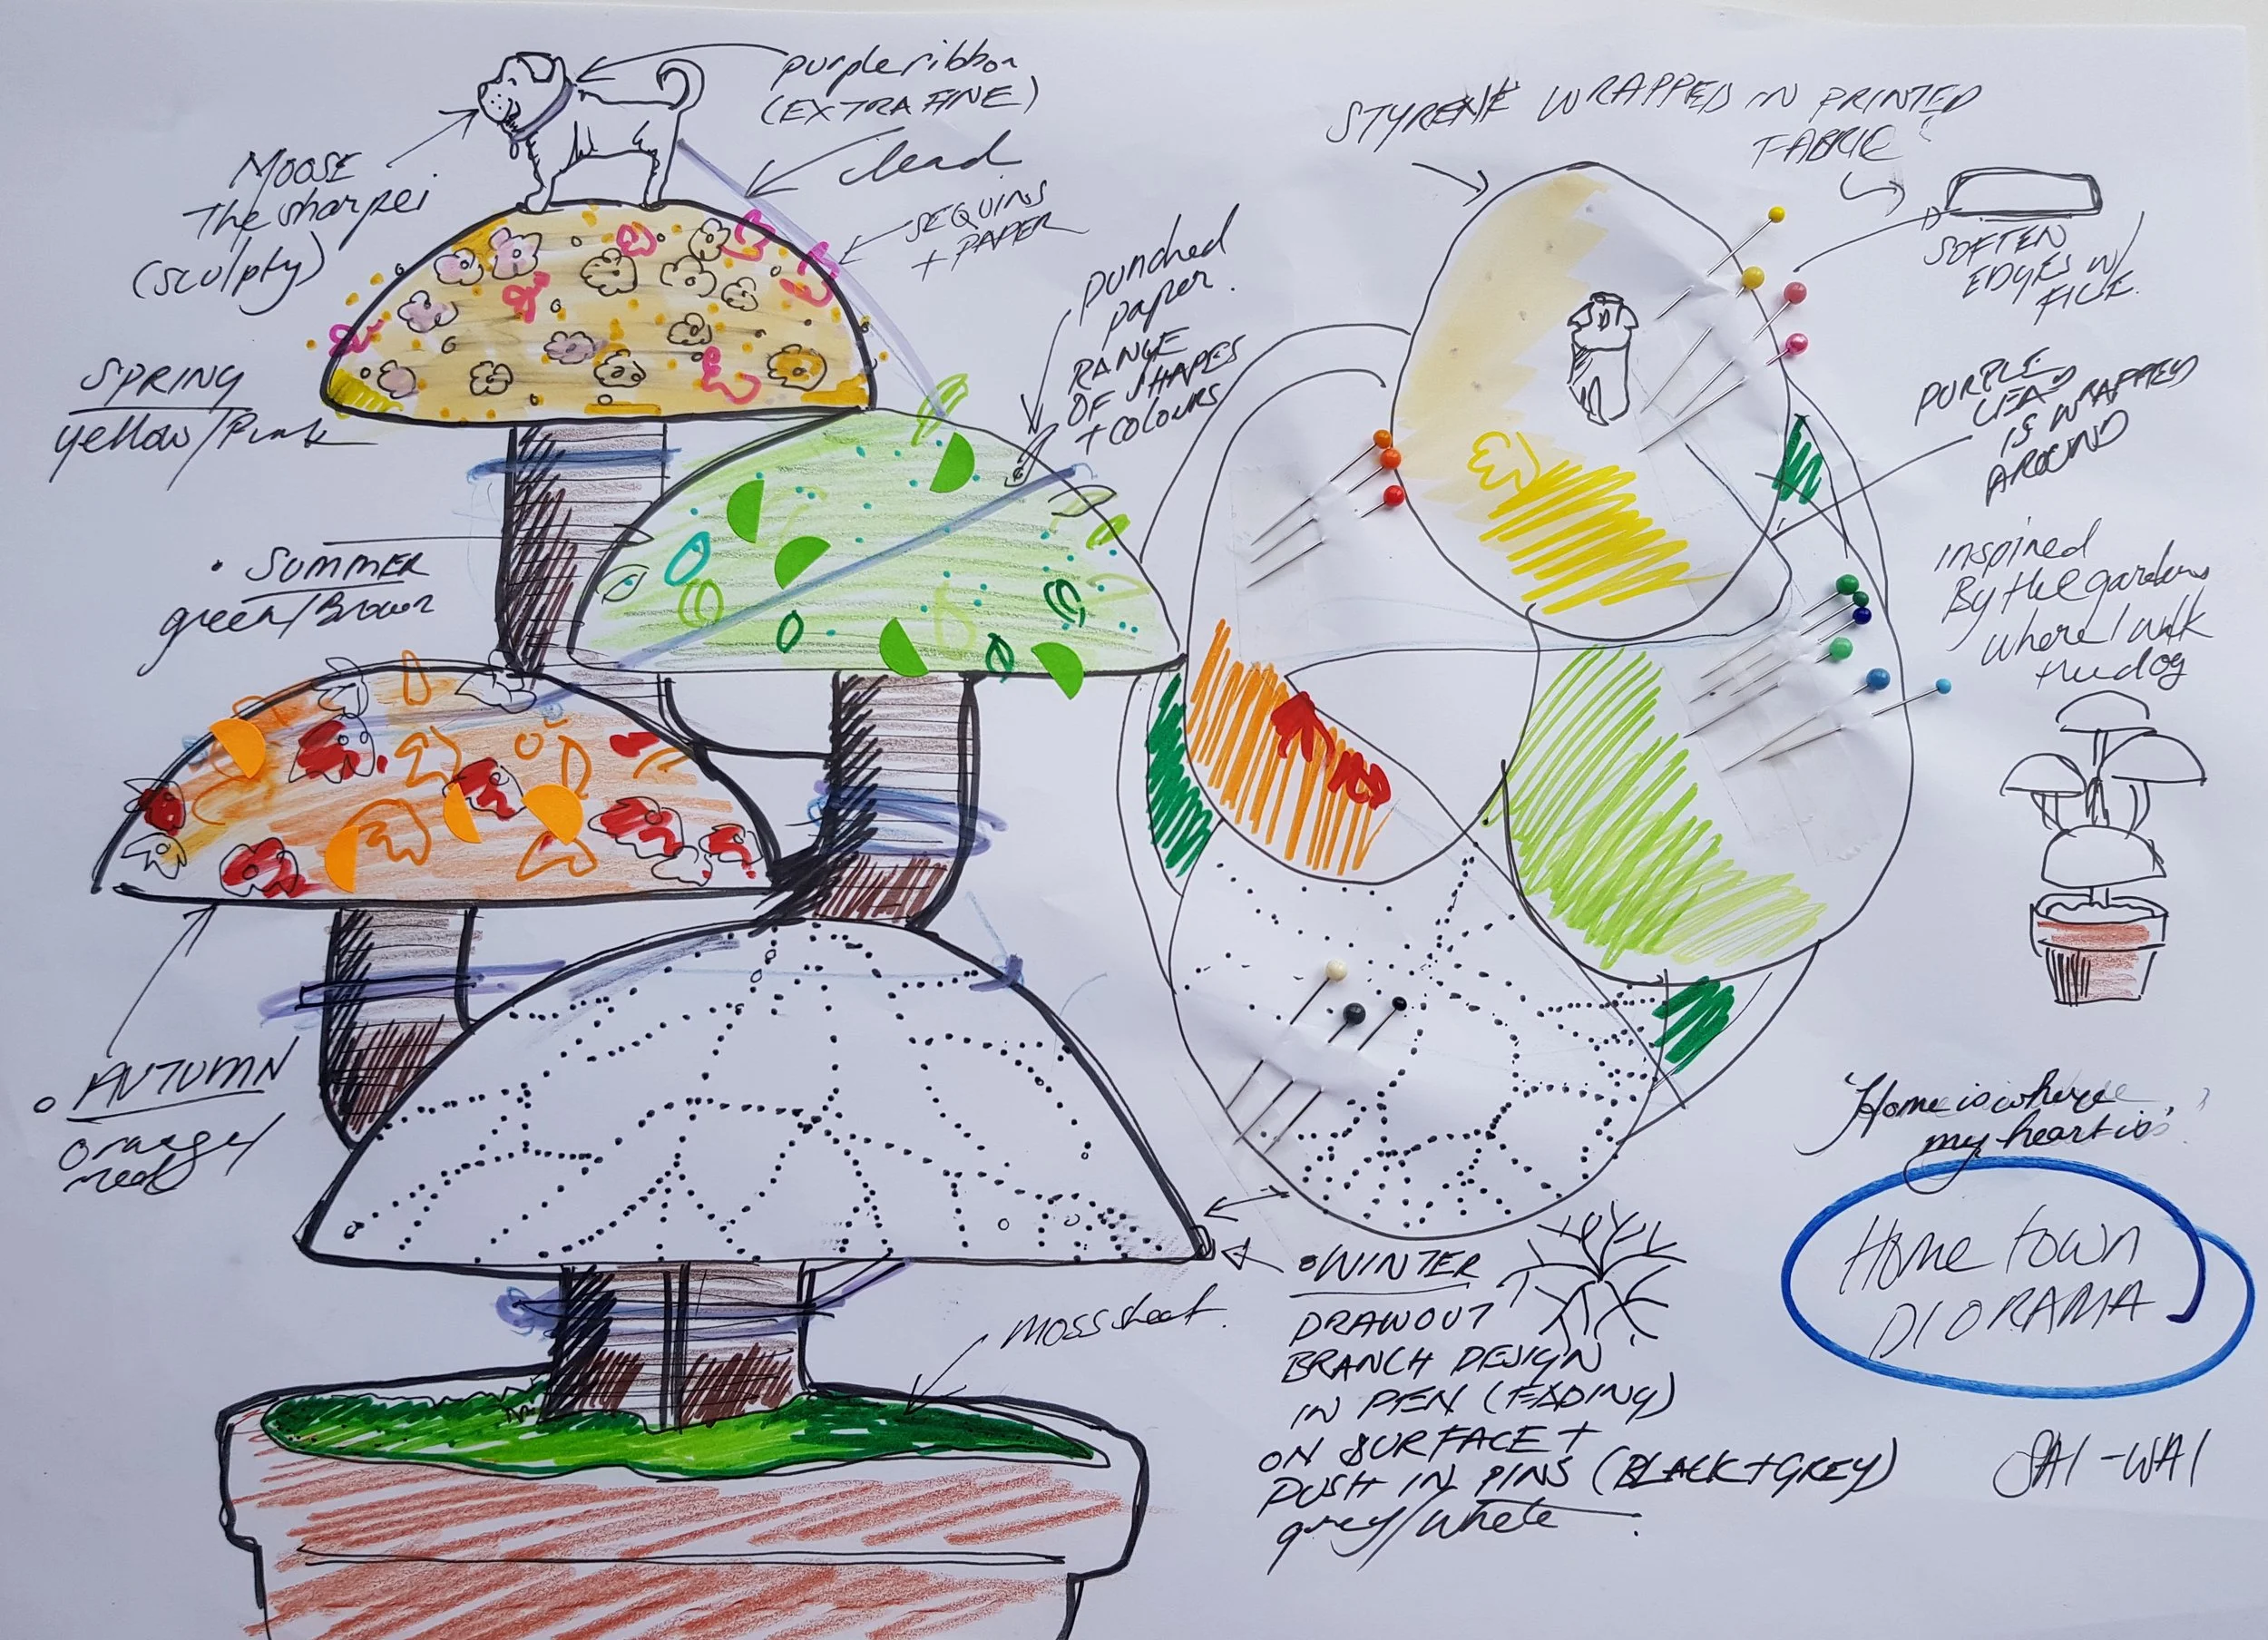 purple ribbon
(EXTRA FINE)
lead
MOOSE
The sharpei
(sculpty)
SEQUINS
+ PAPER
SPRING
yellow/Pink
punched
paper.
RANGE
OF SHAPES
+ COLOURS
• SUMMER
green/Brown
AUTUMN
orange/
red
STYRENE WRAPPED IN PRINTED
FABRIC
SOFTEN
EDGES W/
FILE.
PURPLE
LEAD
IS WRAPPED
AROUND
inspired
By the gardens
where I walk
the dog
'Home is where
my heart is'
Home town
DIORAMA
SAI-WAI
moss sheet.
• WINTER
DRAW OUT
BRANCH DESIGN
IN PEN (FADING)
ON SURFACE +
PUSH IN PINS (BLACK + GREY)
grey/white